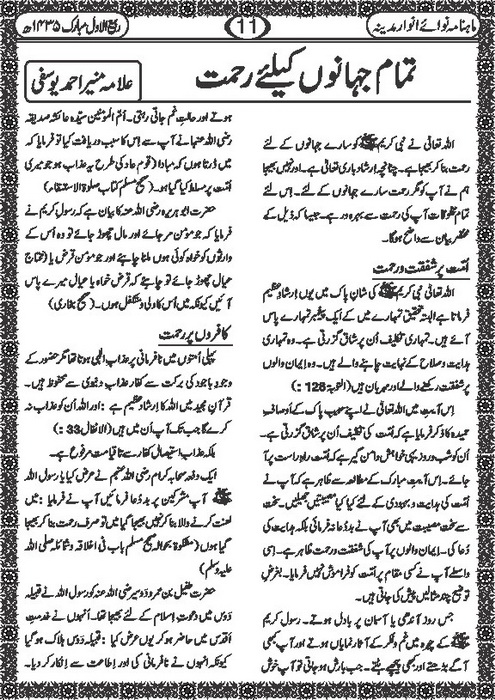 ماہنامہ نوائے انوار مدینہ
11
ربیع الاول مبارک ۱۴۳۵ھ
تمام جہانوں کیلئے رحمت
علامہ منیر احمد یوسفی
اللہ تعالیٰ نے نبی کریم ﷺ کو سارے جہانوں کے لئے
رحمت بنا کر بھیجا ہے۔ چنانچہ ارشاد باری تعالیٰ ہے۔ اور نہیں بھیجا
ہم نے آپ کو مگر رحمت سارے جہانوں کے لئے۔ اِس لئے
تمام مخلوقات آپ کی رحمت سے بہرہ ور ہے۔ جیسا کہ ذیل کے
مختصر بیان سے واضح ہوگا۔
اُمّت پر شفقت و رحمت
اللہ تعالیٰ نبی کریم ﷺ کی شانِ پاک میں یوں اِرشادِ عظیم
فرماتا ہے البتہ تحقیق تمہارے میں کے ایک پیغمبر تمہارے پاس
آئے ہیں۔ تمہاری تکلیف اُن پر شاق گزرتی ہے۔ وہ تمہاری
ہدایت و صلاح کے نہایت چاہنے والے ہیں۔ وہ ایمان والوں
پر شفقت رکھنے والے اور مہربان ہیں (التوبۃ 128 :)
اِس آیت میں اللہ تعالیٰ نے اپنے حبیب پاک کے اَوصافِ
حمیدہ کا ذکر فرمایا ہے کہ اُمّت کی تکلیف اُن پر شاق گزرتی ہے۔
اُن کو شب و روز یہی خواہش دامن گیر ہے کہ اُمّت راہِ راست پر آ
جائے۔ اِس آیت مبارک کے مطالعہ سے ظاہر ہے کہ آپ نے
اُمّت کی ہدایت و بہبودی کے لئے کیا کیا مصیبتیں جھیلیں۔ سخت
سے سخت مصیبت میں بھی آپ نے بد دُعا نہ فرمائی بلکہ ہدایت کی
دُعا کی۔ ایمان والوں پر آپ کی شفقت و رحمت ظاہر ہے۔ اِسی
واسطے آپ نے کسی مقام پر اُمّت کو فراموش نہیں فرمایا۔ بغرضِ
توضیح چند مثالیں پیش کی جاتی ہیں۔
جس روز آندھی یا آسمان پر بادل ہوتے۔ رسول کریم
کے چہرہ میں غم و فکر کے آثار نمایاں ہوتے اور آپ کبھی
آگے بڑھتے اور کبھی پیچھے ہٹتے۔ جب بارش ہو جاتی تو آپ خوش
ہوتے اور حالتِ غم جاتی رہتی۔ اُم المؤمنین سیّدہ عائشہ صدیقہ
رضی اللہ عنہا نے آپ سے اِس کا سبب دریافت کیا تو فرمایا کہ
میں ڈرتا ہوں کہ مبادا (قوم عاد کی طرح یہ عذاب ہو جو میری
اُمّت پر مسلط کیا گیا ہو۔ (صحیح مسلم کتاب صلوۃ الاستسقاء)
حضرت ابو ہریرہ رضی اللہ عنہ کا بیان ہے کہ رسول کریم نے
فرمایا کہ جو مؤمن مر جائے اور مال چھوڑ جائے تو وہ اُس کے
وارثوں کو خواہ کوئی ہوں ملنا چاہئے اور جو مؤمن قرض یا (محتاج
عیال چھوڑ جائے تو چاہئے کہ قرض خواہ یا عیال میرے پاس
آئیں کیونکہ میں اُس کا ولی و متکفل ہوں۔ (صحیح بخاری)
کافروں پر رحمت
پہلی اُمّتوں میں نافرمانی پر عذابِ الٰہی ہوتا تھا مگر حضور کے
وجودِ باجود کی برکت سے کفار عذابِ دنیوی سے محفوظ ہیں۔
قرآن مجید میں اللہ کا اِرشادِ عظیم ہے : اور اللہ اُن کو عذاب نہ
کرے گا جب تک آپ اُن میں ہیں (الانفال 33 :)
بلکہ عذابِ استیصال کفار سے تا قیامت مرفوع ہے۔
ایک دفعہ صحابہ کرام رضی اللہ عنہم نے عرض کیا یا رسول اللہ
ﷺ آپ مشرکین پر بد دُعا فرمائیں آپ نے فرمایا : میں
لعنت کرنے والا بنا کر نہیں بھیجا گیا میں تو صرف رحمت بنا کر بھیجا
گیا ہوں (مشکوٰۃ بحوالہ صحیح مسلم باب فی اخلاقہ و شمائلہ صلی اللہ
علیہ وسلم)
حضرت طفیل بن عمرو دوسی رضی اللہ عنہ کو رسول اللہ نے قبیلہ
دَوس میں دعوتِ اسلام کے لئے بھیجا تھا۔ اُنہوں نے خدمتِ
اَقدس میں حاضر ہو کر یوں عرض کیا : قبیلہ دَوس ہلاک ہو گیا
کیونکہ اُنہوں نے نافرمانی کی اور اِطاعت سے اِنکار کر دیا۔